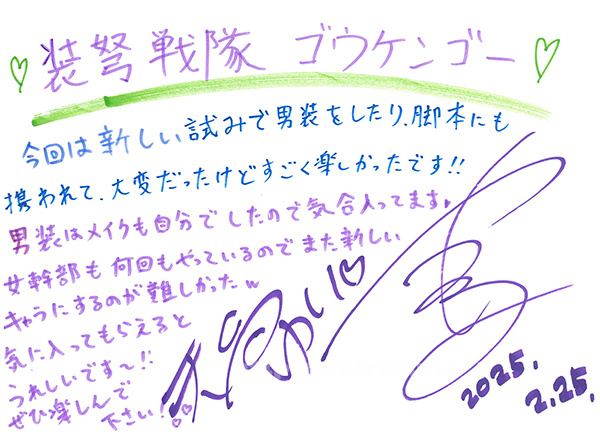 装弩戦隊 ゴウケンゴー
今回は新しい試みで男装をしたり、脚本にも
携われて、大変だったけどすごく楽しかったです!!
男装はメイクも自分でしたので気合入ってます。
女幹部も何回もやっているのでまた新しい
キャラにするのが難しかったw
気に入ってもらえると
うれしいです~!!
ぜひ楽しんで
下さい!
2025.
2.25.